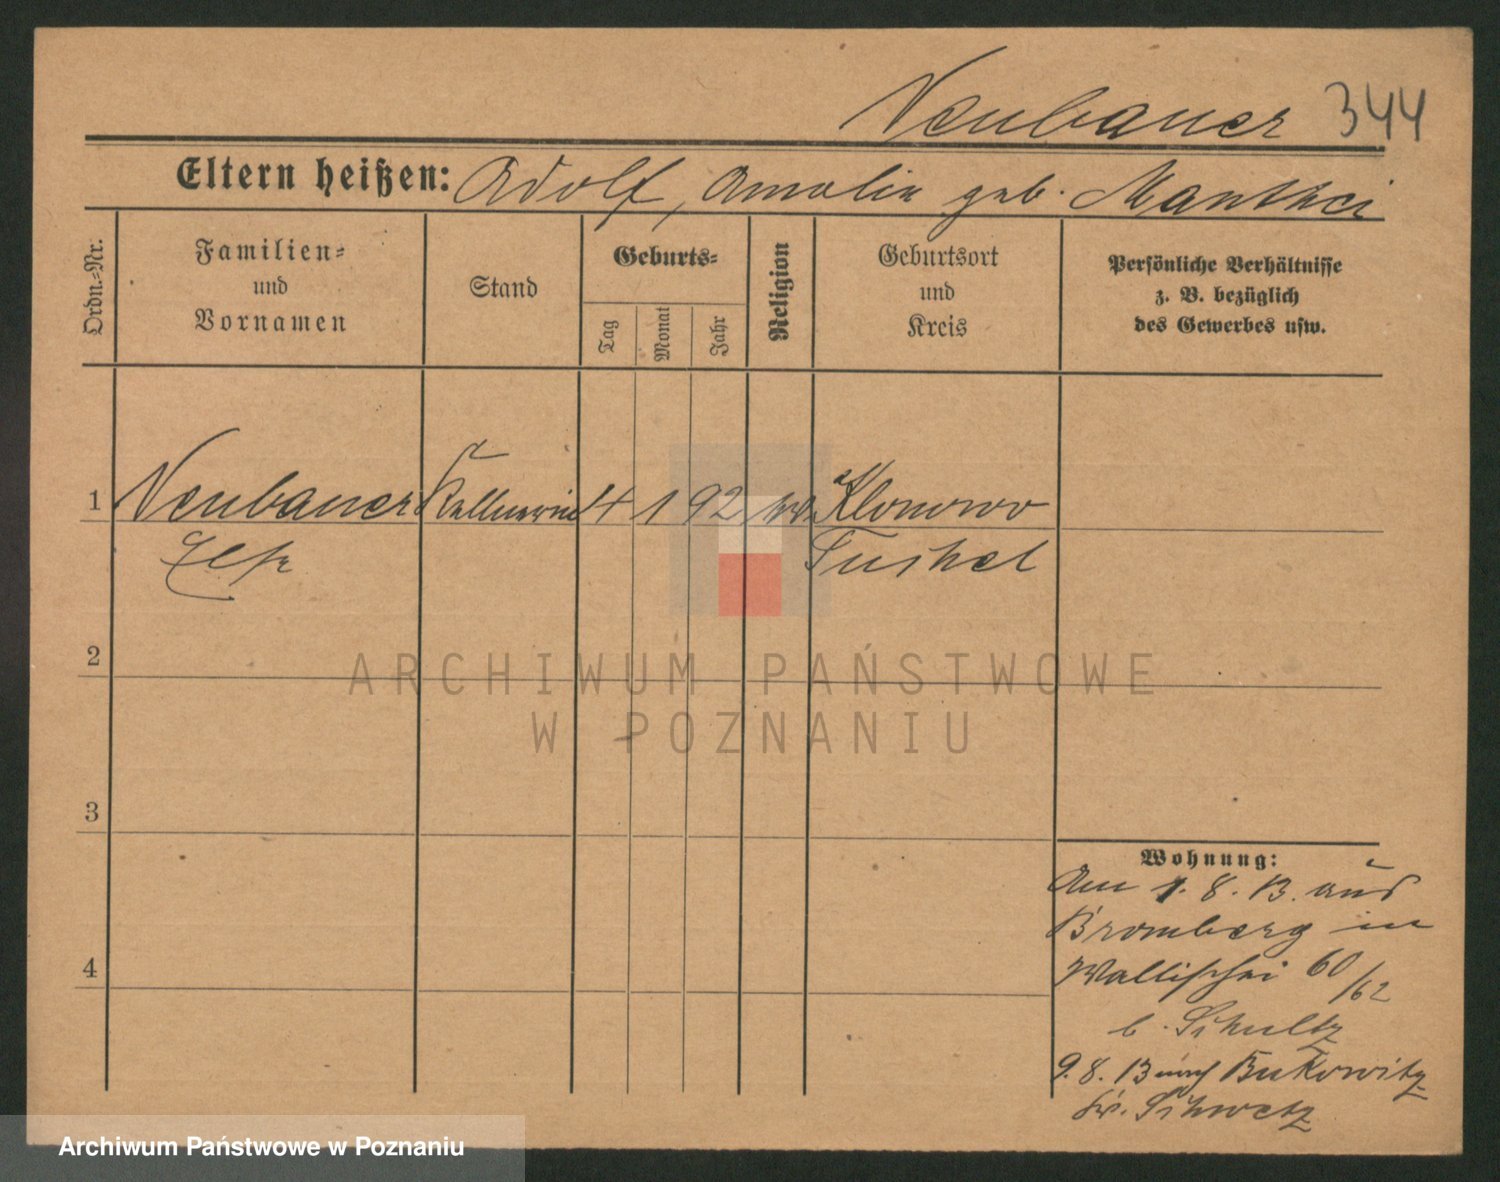 Neubauer 344
Eltern heißen: Adolf, Amalie geb. Manthei
Ordn.-Nr.
Familien-
und
Vornamen
Stand
Geburts-
Tag
Monat
Jahr
Religion
Geburtsort
und
Kreis
Persönliche Verhältnisse
z. B. bezüglich
des Gewerbes usw.
1 Neubauer Kellnerin 14 1 92 Klonowo
Else Tuchel
2
3
4
Wohnung:
Am 1. 8. 13. aus
Bromberg in
Wallischei 60/62
b. Schultz
9. 8. 13 nach Bukowitz
Kr. Schwetz
ARCHIWUM PAŃSTWOWE
W POZNANIU
Archiwum Państwowe w Poznaniu